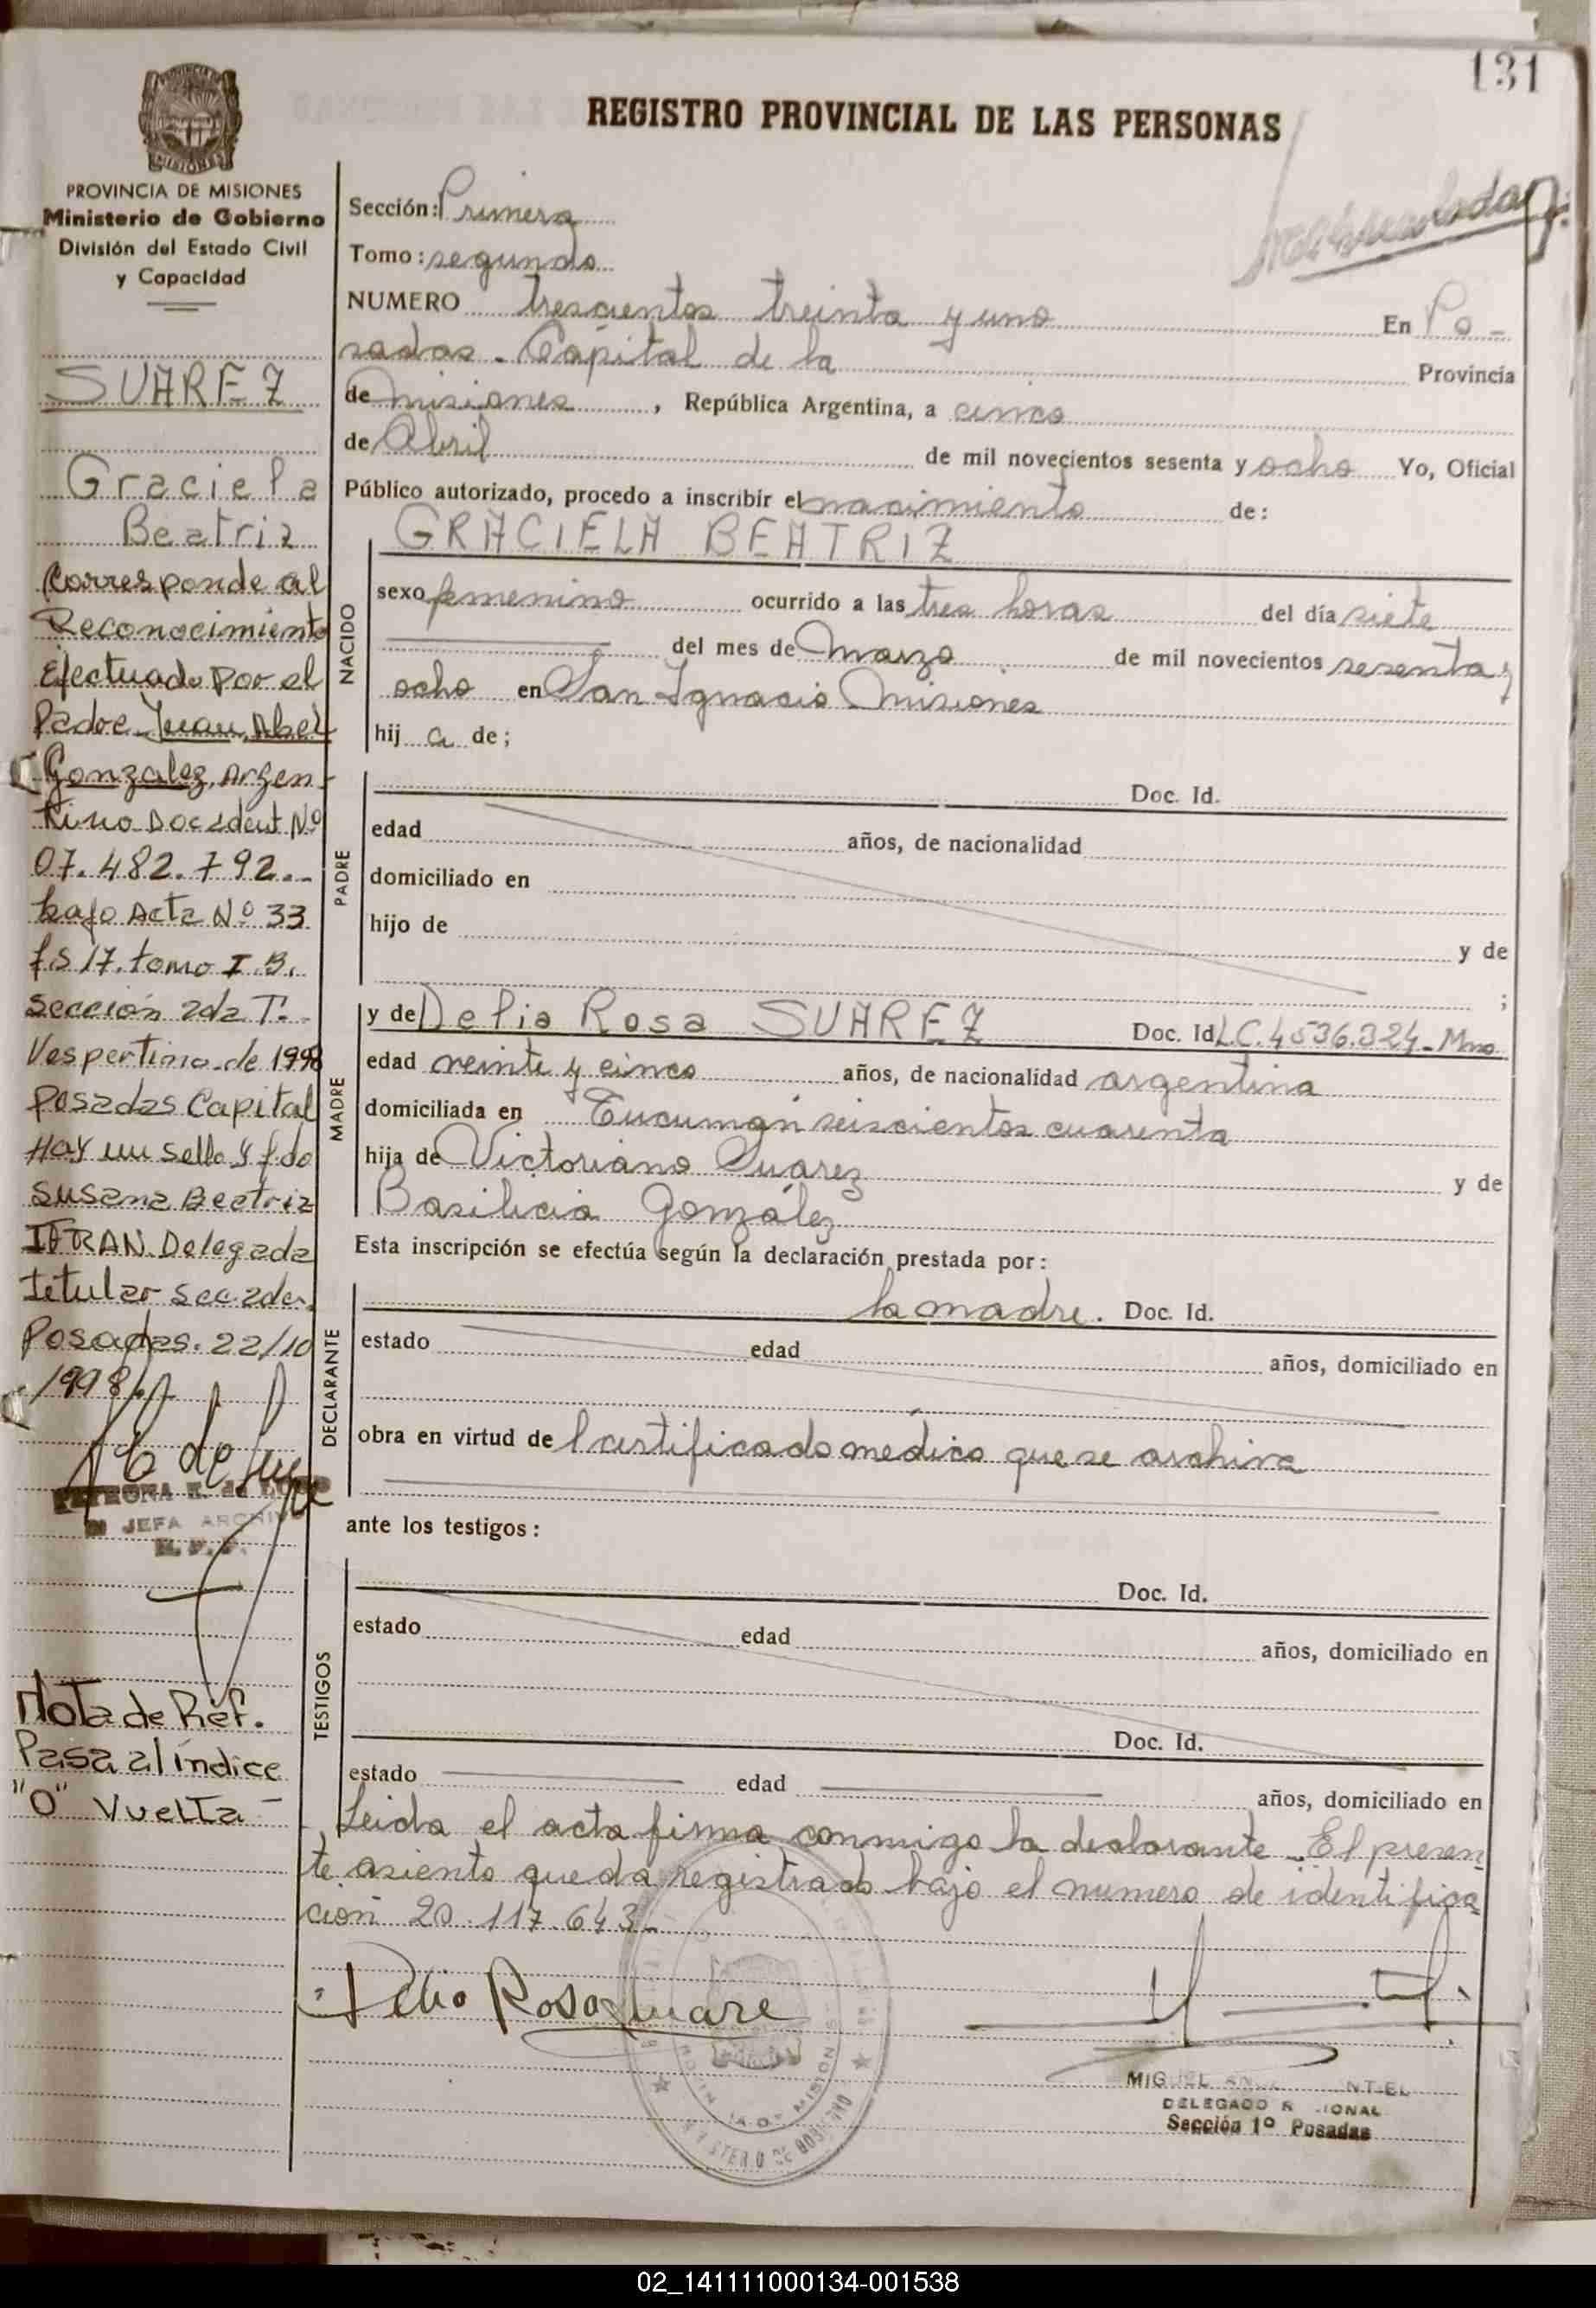 131
REGISTRO PROVINCIAL DE LAS PERSONAS
PROVINCIA DE MISIONES
MISIONES
PROVINCIA DE MISIONES
Ministerio de Gobierno
División del Estado Civil
y Capacidad
SUAREZ
Graciela
Beatriz
Corresponde al
Reconocimiento
Efectuado por el
Padre Juan Abel
Gonzalez, Argen-
tino Doc Ident Nº
07.482.792.-
bajo Acta Nº 33
fs 17. tomo I B.
Sección 2da T.
Vespertino de 1998
Posadas Capital
Hay un sello y fdo
Susana Beatriz
Delegada
Titular Sec 2da.
Posadas. 22/10
/1998
PETRONA
JEFA ARCHIVO
Nota de Ref.
Pasa al índice
"O" Vuelta -
Sección: Primera
Tomo: segundo
NUMERO trescientos treinta y uno En Po-
sadas - Capital de la Provincia
de Misiones, República Argentina, a cinco
de Abril de mil novecientos sesenta y ocho Yo, Oficial
Público autorizado, procedo a inscribir el nacimiento de:
GRACIELA BEATRIZ
NACIDO
sexo femenino ocurrido a las tres horas del día siete
del mes de Marzo de mil novecientos sesenta y
ocho en San Ignacio Misiones
hij a de;
PADRE
Doc. Id.
edad años, de nacionalidad
domiciliado en
hijo de y de
;
MADRE
y de Delia Rosa SUAREZ Doc. Id L.C. 4536.324 - Mnes
edad veinte y cinco años, de nacionalidad argentina
domiciliada en Tucumán seiscientos cuarenta
hija de Victoriano Suárez y de
Basilicia González
Esta inscripción se efectúa según la declaración prestada por:
DECLARANTE
la madre. Doc. Id.
estado edad años, domiciliado en
obra en virtud de l certificado médico que se archiva
ante los testigos:
TESTIGOS
Doc. Id.
estado edad años, domiciliado en
Doc. Id.
estado edad años, domiciliado en
Leida el acta firma conmigo la declarante. El presen
te asiento queda registrado bajo el numero de identifica
ción 20.117.643-
Delia Rosa Suare
MIGUEL
DELEGADO
Sección 1º Posadas
02_141111000134-001538